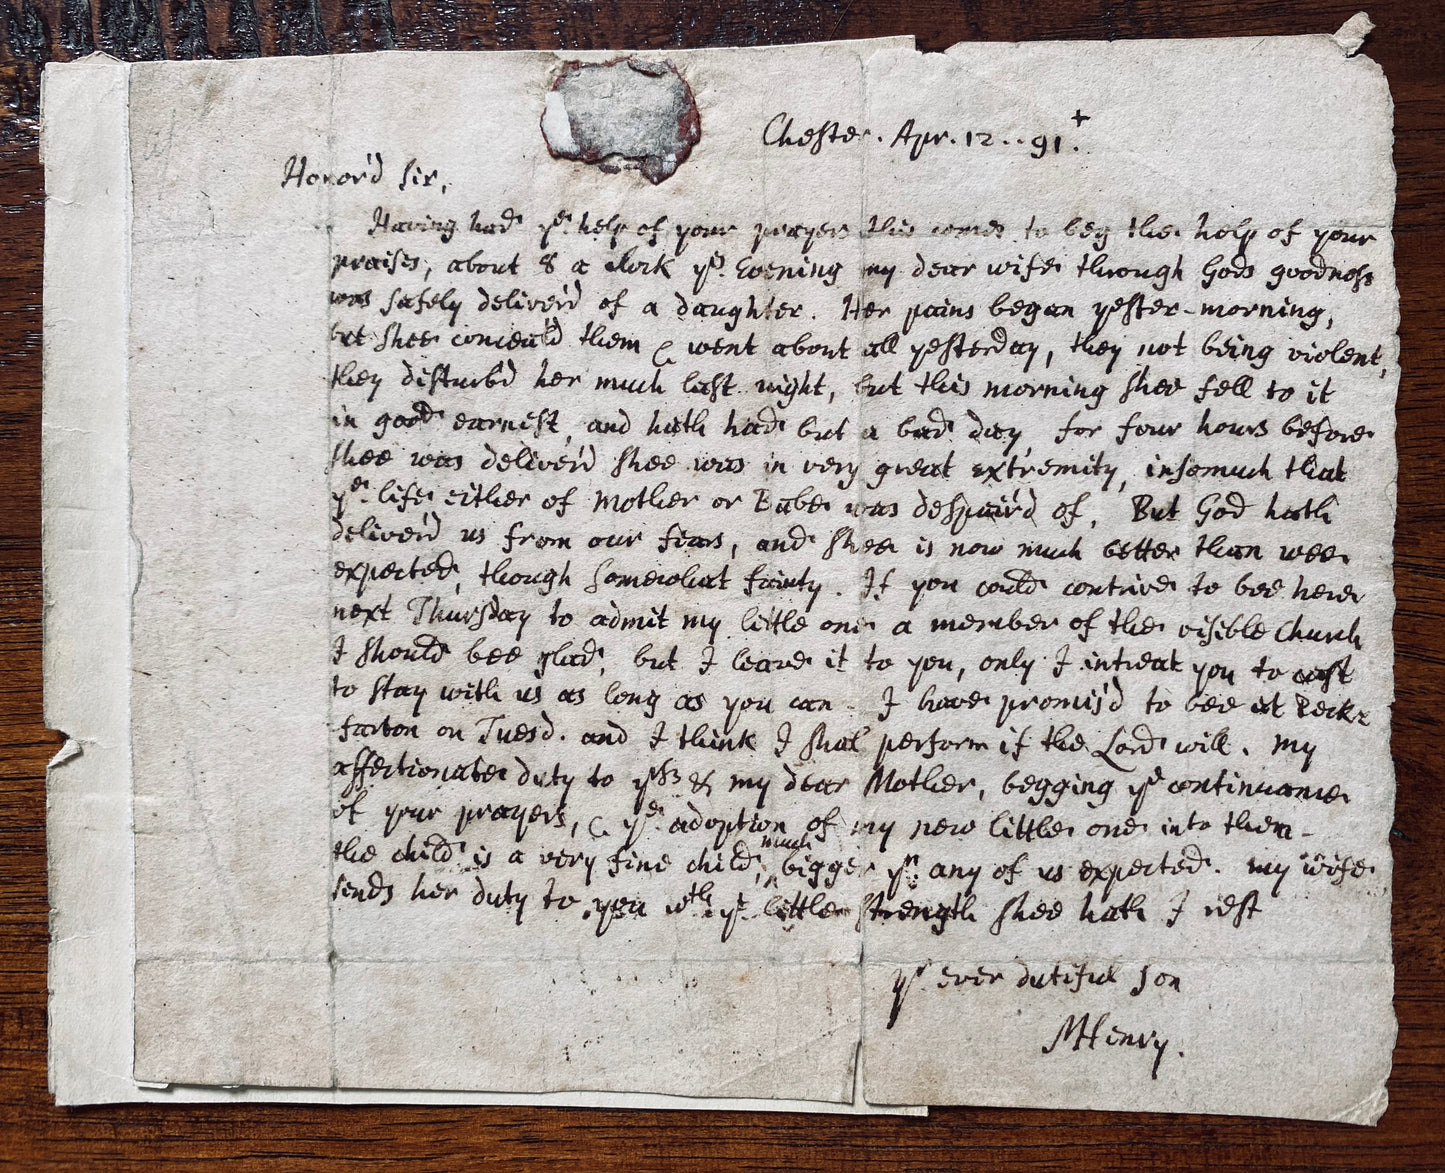 Chester. Apr. 12.. 91.+
Honor'd Sir,
Having had ye help of your prayers this comes to beg the help of your
praises, about 8 a clock ys Evening my dear wife through Gods goodness
was safely deliver'd of a daughter. Her pains began yester-morning,
but shee conceal'd them & went about all yesterday, they not being violent,
they disturb'd her much last night, but this morning shee fell to it
in good earnest, and hath had but a bad day, for four hours before
shee was deliver'd shee was in very great extremity, insomuch that
ye life either of Mother or Babe was despair'd of. But God hath
deliver'd us from our fears, and shee is now much better than wee
expected, though somewhat fainty. If you could contrive to bee here
next Thursday to admit my little one a member of the visible Church
I should bee glad, but I leave it to you, only I intreat you to
to stay with us as long as you can. I have promis'd to bee at
on Tuesd. and I think I shal perform if the Lord will. My
affectionate duty to & my dear Mother, begging ye continuance
of your prayers, & ye adoption of my new little one into them -
the child is a very fine child, much bigger yn any of us expected. my wife
sends her duty to you wth ye little strength shee hath I rest
yr ever dutiful son
MHenry.